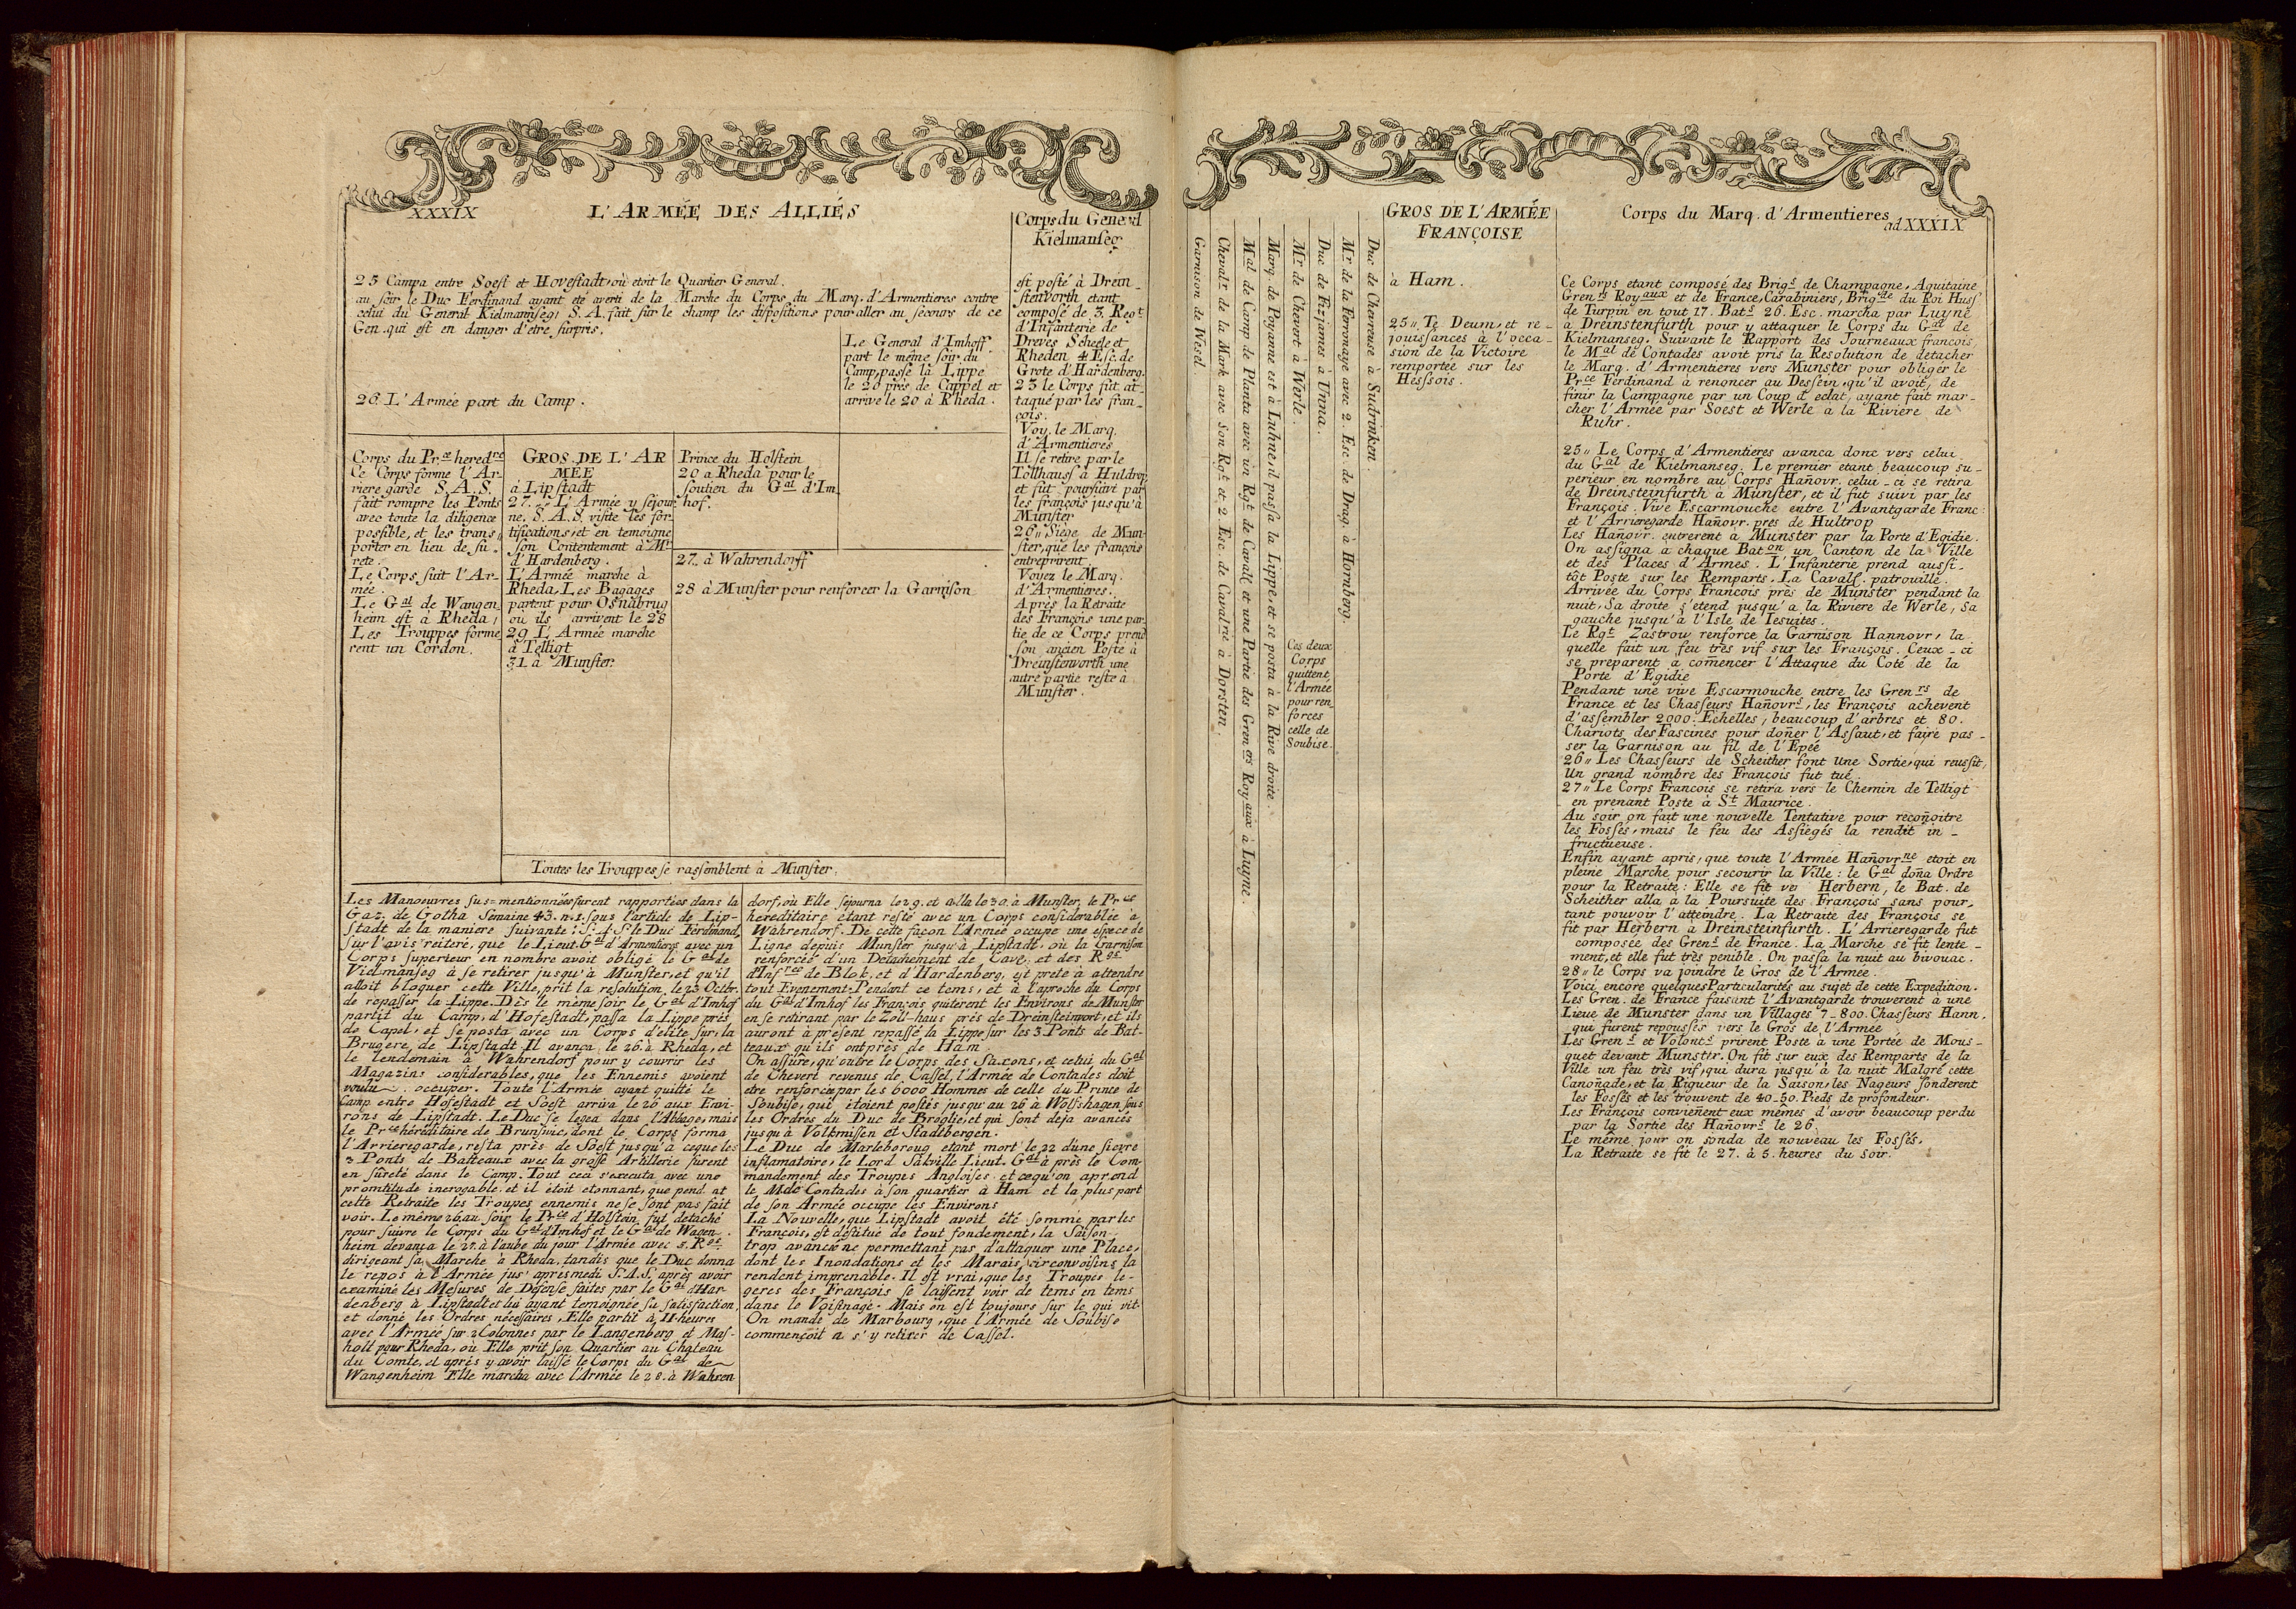 XXXIX
L'ARMÉE DES ALLIÉS
25 Campa entre Soest et Hovestadt, où etoit le Quartier General.
au soir le Duc Ferdinand ayant eté averti de la Marche du Corps du Marq. d'Armentieres contre
celui du General Kielmanseg, S. A. fait sur le champ les dispositions pour aller au secours de ce
Gen. qui est en danger d'etre surpris.
Le General d'Imhoff
part le même soir du
Camp, passe la Lippe
le 20 près de Cappel et
arrive le 20 à Rheda.
26. L'Armée part du Camp.
Corps du Pr.ce hered.re
Ce Corps forme l'Ar-
riere garde S. A. S.
fait rompre les Ponts
avec toute la diligence
possible, et les trans
porter en lieu de su-
rete.
Le Corps suit l'Ar-
mée.
Le Gal de Wangen
heim est à Rheda,
Les Trouppes forme
rent un Cordon.
GROS DE L'AR
MÉE
à Lipstadt
27. L'Armée y sejour
ne. S. A. S. visite les for
tifications, et en temoigne
son Contentement à Mr
d'Hardenberg.
L'Armée marche à
Rheda, Les Bagages
partent pour Osnabrug
ou ils arrivent le 28
29 L'Armée marche
à Telligt
31 à Munster.
Prince du Holstein
20 a Rheda pour le
soutien du Gal d'Im
hof.
27. à Wahrendorff
28 à Munster pour renforcer la Garnison
Toutes les Trouppes se rassemblent à Munster.
Corps du General
Kielmanseg
est posté à Drein
stenvorth etant
composé de 3. Regt
d'Infanterie de
Dreves Scheele et
Rheden 4 Esc. de
Grote d'Hardenberg.
25 le Corps fût at
taqué par les fran
çois.
Voy. le Marq.
d'Armentieres
Il se retire par le
Tollhauss à Huldrop
et fût poursuivi par
les françois jusqu'à
Munster
26 Siege de Mun-
ster, que les françois
entreprirent.
Voyez le Marq.
d'Armentieres.
Après la Retraite
des François une par
tie de ce Corps prend
son ancien Poste à
Dreinstenvorth une
autre partie reste à
Munster.
Les Manoeuvres sus=mentionnées furent rapportées dans la
Gaz. de Gotha Semaine 43. n. 1. sous l'article de Lip-
stadt de la maniere suivante: S. A. S. le Duc Ferdinand,
sur l'avis reiteré, que le Lieut. Gal d'Armentieres avec un
Corps superieur en nombre avoit obligé le Gal de
Vielmanseg à se retirer jusqu'à Munster, et qu'il
alloit bloquer cette Ville, prit la resolution le 25 Octbr.
de repasser la Lippe. Dès le même soir le Gal d'Imhof
partit du Camp d'Hofestadt, passa la Lippe près
de Capel, et se posta avec un Corps d'elite sur la
Brugere de Lipstadt. Il avança le 26. à Rheda, et
le lendemain à Wahrendorf pour y couvrir les
Magazins considerables, que les Ennemis avoient
voulu occuper. Toute l'Armée ayant quitté le
Camp entre Hofestadt et Soest arriva le 26 aux Envi-
rons de Lipstadt. Le Duc se logea dans l'Abbaye, mais
le Pr.ce héréditaire de Brunsvic, dont le Corps forma
l'Arrieregarde, resta près de Soest jusqu'à ceque les
3 Ponts de Batteaux avec la grosse Artillerie furent
en sûreté dans le Camp. Tout ceci s'executa avec une
promtitude incroyable, et il étoit etonnant, que pend at
cette Retraite les Troupes ennemis ne se sont pas fait
voir. Le même 26. au soir le Pr.ce d'Holstein fut detaché
pour suivre le Corps du Gal d'Imhof et le Gal de Wagen
heim devança le 27. à l'aube du jour l'Armée avec 5. Rgs
dirigeant sa Marche à Rheda, tandis que le Duc donna
le repos à l'Armée jus' apresmedi S. A. S. après avoir
examiné les Mesures de Défense faites par le Gal d'Har
denberg à Lipstadt et lui ayant temoignée sa satisfaction,
et donné les Ordres nécessaires, Elle partit à 11 heures
avec l'Armée sur 2 Colonnes par le Langenberg et Mas-
holt pour Rheda, où Elle prit son Quartier au Chateau
du Comte, et après y avoir laissé le Corps du Gal de
Wangenheim Elle marcha avec l'Armée le 28. à Wahren
dorf, où Elle séjourna le 29. et alla le 30. à Munster, le Pr.ce
hereditaire étant resté avec un Corps considerablee à
Wahrendorf. De cette façon l'Armée occupe une espece de
Ligne depuis Munster jusqu'à Lipstadt, où la Garnison
renforcée d'un Detachement de Cave, et des Rgs
d'Infrie de Blok, et d'Hardenberg, est prete à attendre
tout Evenement. Pendant ce tems, et à l'aproche du Corps
du Gal d'Imhof les François quiterent les Environs de Munster
en se retirant par le Zoll-haus près de Dreinsteinvort, et ils
auront à présent repassé la Lippe sur les 3 Ponts de Bat-
teaux qu'ils ont près de Ham.
On assure, qu'outre le Corps des Saxons, et celui du Gal
de Chevert revenus de Cassel, l'Armée de Contades doit
etre renforcée par les 6000 Hommes de celle du Prince de
Soubise, qui étoient postés jusqu'au 26 à Wolfshagen, sous
les Ordres du Duc de Broglie, et qui sont déja avancés
jusqu'à Volkmissen et Stadtbergen.
Le Duc de Marleboroug etant mort le 22 d'une fievre
inflamatoire, le Lord Sakville Lieut. Gal à près le Com
mandement des Troupes Angloises, et cequ'on aprend
le Mde Contades à son quartier à Ham et la plus part
de son Armée occupe les Environs
La Nouvelle, que Lipstadt avoit été sommé par les
François, est destitué de tout fondement, la Saison
trop avancée ne permettant pas d'attaquer une Place,
dont les Inondations et les Marais circonvoisins la
rendent imprenable. Il est vrai, que les Troupes le-
geres des François se laissent voir de tems en tems
dans le Voisinage. Mais on est toujours sur le qui vit.
On mande de Marbourg, que l'Armée de Soubise
commençoit a s'y retirer de Cassel.
Garnison de Wesel.
Chevalr de la Mark avec son Rgt et 2 Esc. de Cavalrie à Dorsten.
Mal de Camp de Planta avec un Rgt de Cavalc et une Partie des Grenrs Royaux à Luyne.
Marq. de Poyanne est à Luhne, il passa la Lippe, et se posta à la Rive droite.
Mr de Chevert à Werle.
Duc de Fizjames à Unna.
Ces deux
Corps
quittent
l'Armée
pour ren
forces
celle de
Soubise.
Mr de la Ferronaye avec 2. Esc. de Drag. à Hornberg.
Duc de Chevreuse à Sudrinken.
GROS DE L'ARMÉE
FRANÇOISE
à Ham.
25 Te Deum, et re-
jouissances à l'occa-
sion de la Victoire
remportée sur les
Hessois.
Corps du Marq. d'Armentieres
ad XXXIX
Ce Corps etant composé des Brigs de Champagne, Aquitaine
Grenrs Royaux et de France, Carabiniers, Brigde du Roi Huss
de Turpin en tout 17. Bats 26. Esc. marcha par Luyne
à Dreinstenfurth pour y attaquer le Corps du Gal de
Kielmanseg. Suivant le Rapport des Journeaux francois,
le Mal de Contades avoit pris la Resolution de detacher
le Marq. d'Armentieres vers Munster pour obliger le
Prce Ferdinand à renoncer au Dessein, qu'il avoit, de
finir la Campagne par un Coup d'eclat, ayant fait mar-
cher l'Armée par Soest et Werle a la Riviere de
Ruhr.
25 Le Corps d'Armentieres avança donc vers celui
du Gal de Kielmanseg. Le premier etant beaucoup su-
perieur en nombre au Corps Hañovr. celui-ci se retira
de Dreinsteinfurth à Munster, et il fut suivi par les
François. Vive Escarmouche entre l'Avantgarde Franc:
et l'Arrieregarde Hañovr. pres de Hultrop
Les Hañovr. entrerent à Munster par la Porte d'Egidie.
On assigna a chaque Baton un Canton de la Ville
et des Places d'Armes. L'Infanterie prend aussi-
tôt Poste sur les Remparts. La Cavalc. patrouille.
Arrivée du Corps Francois près de Munster pendant la
nuit, Sa droite s'etend jusqu'a la Riviere de Werle, Sa
gauche jusqu'à l'Isle de Iesuites.
Le Rgt Zastrow renforce la Garnison Hannovr, la
quelle fait un feu très vif sur les François. Ceux-ci
se preparent à comencer l'Attaque du Coté de la
Porte d'Egidie
Pendant une vive Escarmouche entre les Grenrs de
France et les Chasseurs Hañovrs, les François achevent
d'assembler 2000. Echelles, beaucoup d'arbres et 80.
Chariots des Fascines pour doñer l'Assaut, et faire pas-
ser la Garnison au fil de l'Epée
26 Les Chasseurs de Scheither font une Sortie, qui reussit,
Un grand nombre des François fut tué.
27 Le Corps Francois se retira vers le Chemin de Telligt
en prenant Poste à St Maurice.
Au soir on fait une nouvelle Tentative pour recoñoitre
les Fossés, mais le feu des Assiegés la rendit in-
fructueuse.
Enfin ayant apris, que toute l'Armée Hañovrne etoit en
pleine Marche pour secourir la Ville: le Gal doña Ordre
pour la Retraite: Elle se fit ves Herbern, le Bat. de
Scheither alla à la Poursuite des François sans pour-
tant pouvoir l'atteindre. La Retraite des François se
fit par Herbern à Dreinsteinfurth. L'Arrieregarde fut
composée des Grens de France. La Marche se fit lente-
ment, et elle fut très penible. On passa la nuit au bivouac.
28 le Corps va joindre le Gros de l'Armée.
Voici encore quelques Particularités au sujet de cette Expedition.
Les Gren. de France faisant l'Avantgarde trouverent à une
Lieue de Munster dans un Villages 7-800. Chasseurs Hann.
qui furent repoussés vers le Gros de l'Armée
Les Grens et Volonts prirent Poste à une Portée de Mous-
quet devant Munster. On fit sur eux des Remparts de la
Ville un feu très vif, qui dura jusqu'à la nuit Malgré cette
Canoñade, et la Rigueur de la Saison, les Nageurs sonderent
les Fossés et les trouvent de 40-50. Pieds de profondeur.
Les François convieñent eux mêmes d'avoir beaucoup perdu
par la Sortie des Hañovrs le 26.
Le même jour on sonda de nouveau les Fossés.
La Retraite se fit le 27. à 5. heures du soir.